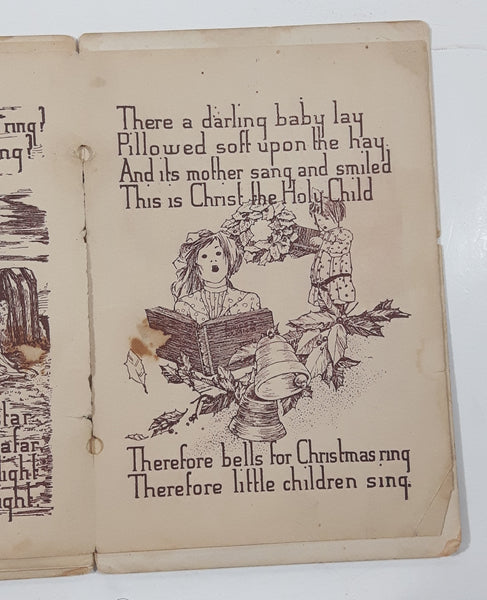 ring?
ng?
star
afar
ight
ight
There a darling baby lay
Pillowed soft upon the hay
And its mother sang and smiled
This is Christ the Holy Child
Therefore bells for Christmas ring
Therefore little children sing.